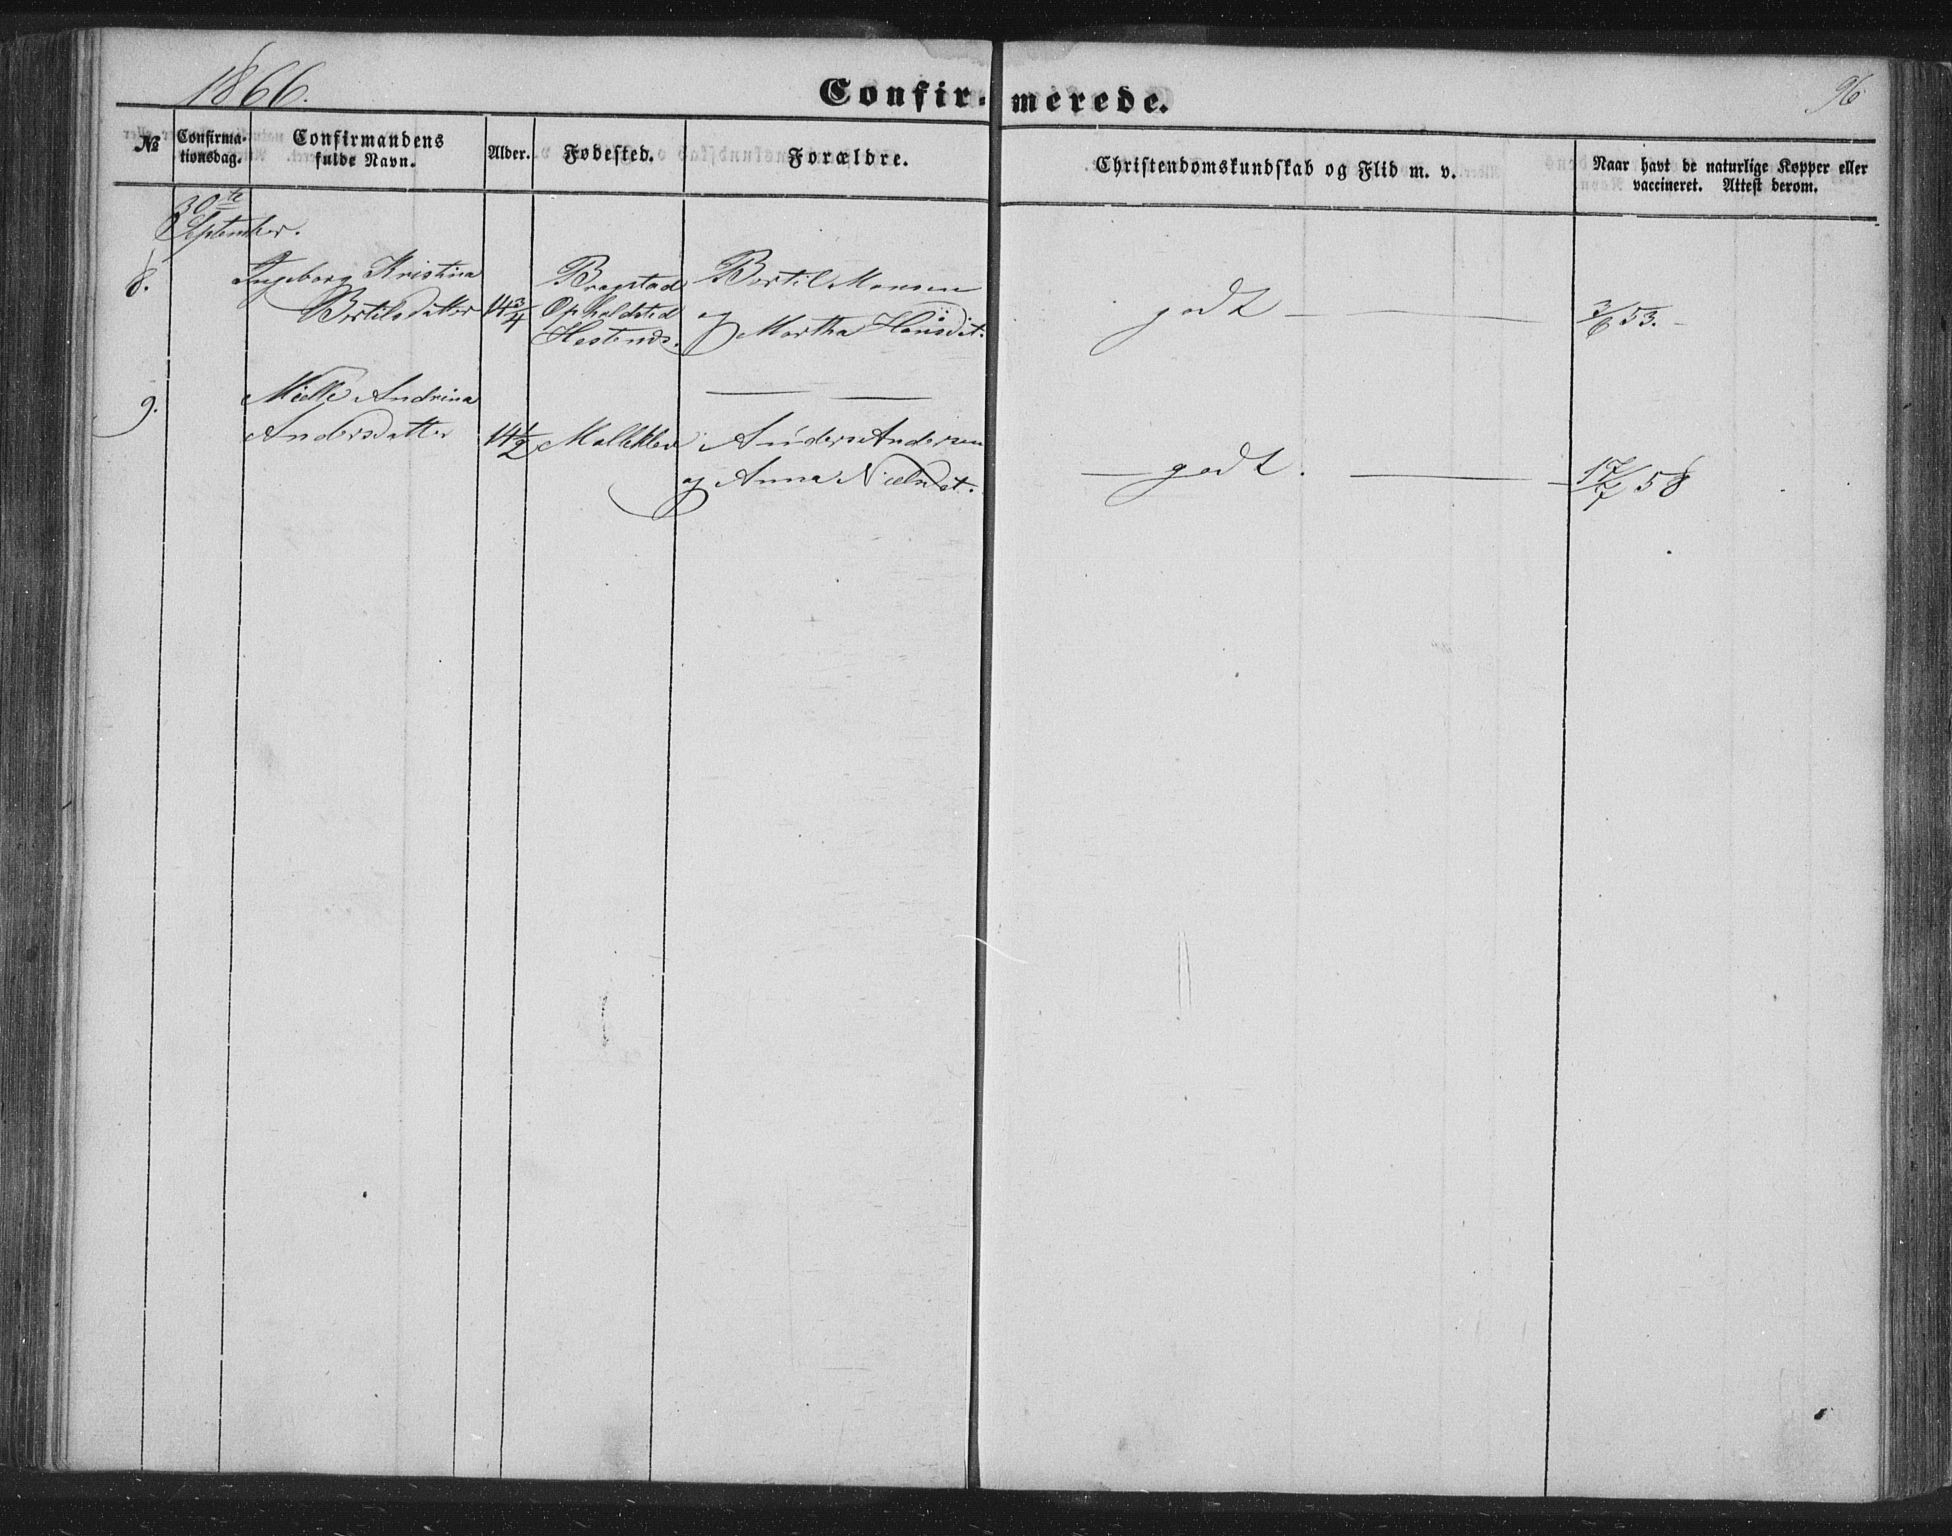 1866.
Confir- merede.
96
№ Confirma-tionsdag. Confirmandens fulde Navn. Alder. Fødested. Forældre. Christendomskundskab og Flid m. v. Naar havt de naturlige Kopper eller vaccineret. Attest derom.
30te
September.
8. Ingeborg Kristina Bragstad Bertil Monsen
Bertilsdatter 14 3/4 Opholdsted og Martha Hansdt. godt 3/6 53.
9. Andrina
Andersdatter 14 1/2 Anders Andersen
og Anna Nielsdt. godt. 17/7 58